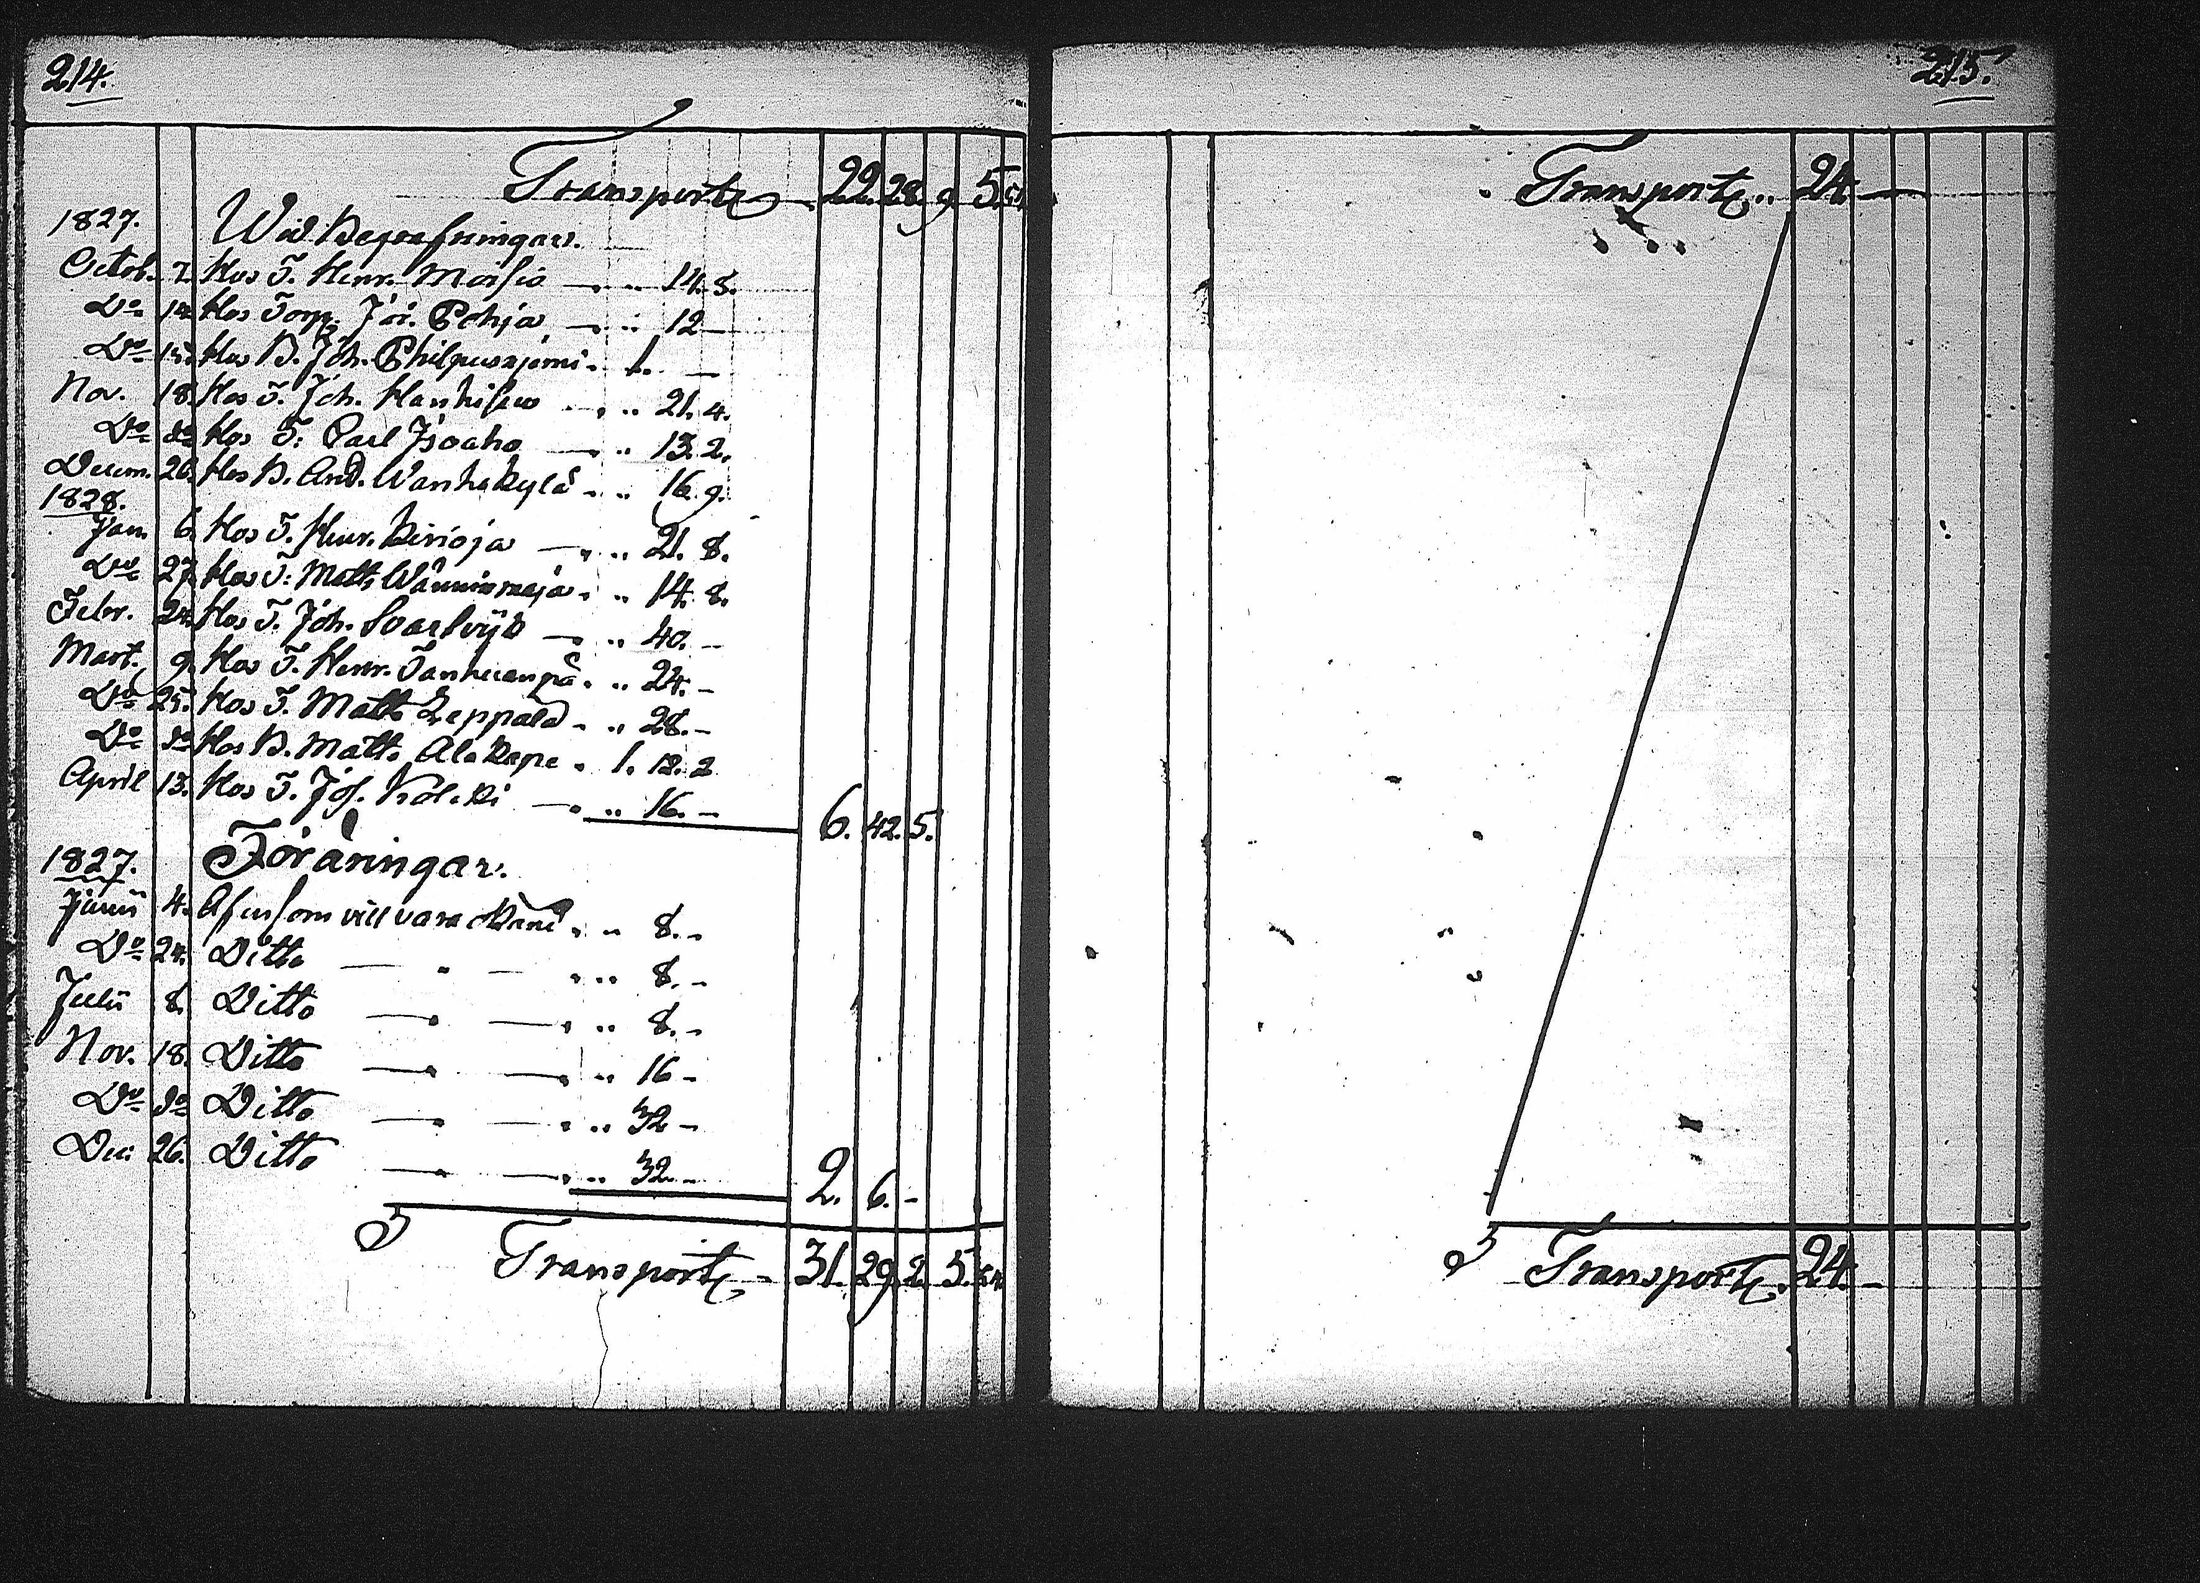 214.
Transport 22. 28. 9. 5. 54
1827. Wid Begrafningar.
Octob. 7. Hos T. Henr. Moisio — " 14. 8.
Do 14. Hos Torp. Joh. Pohja — " 12 —
Do 15. Hos B. Joh. Philpusajemi . 1. —
Nov. 18. Hos T. Joh. Hanhisuo — " 21. 4.
Do do Hos T. Carl Isoaho — " 13. 2.
Decem. 26. Hos B. And. Wanhakylä - " 16. 9.
1828.
Jan. 6. Hos T. Henr. Kirioja — " 21. 8.
Do 27. Hos T. Matts Wänninmaja . " 14. 8.
Febr. 24. Hos T. Joh. Svartvik — " 40. —
Mart. 9. Hos T. Henr. Tanhuanpä . " 24. —
Do 25. Hos T. Matts Leppälä - " 28. —
Do do Hos B. Matts Alakape . 1. 12. 2
April 13. Hos T. Jos. — " 16. — 6. 42. 5.
1827. Föräringar.
Junii 4. Af en som vill vara okänd . " 8. —
Do 24. Ditto — " — " 8. —
Julii 8. Ditto — — " 8. —
Nov. 18. Ditto — — " 16 —
Do do Ditto — — " 32 —
Dec. 26. Ditto — — " 32. — 2. 6. —
Transport - 31. 29. 2. 5. 54
215.
Transport .. 24. —
Transport . 24. —